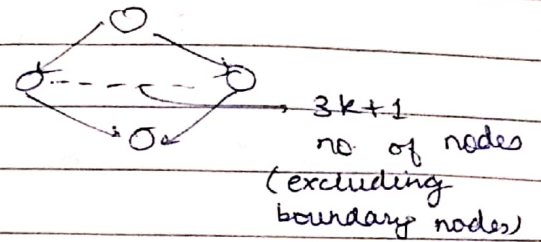 3k+1
no. of nodes
(excluding
boundary nodes)